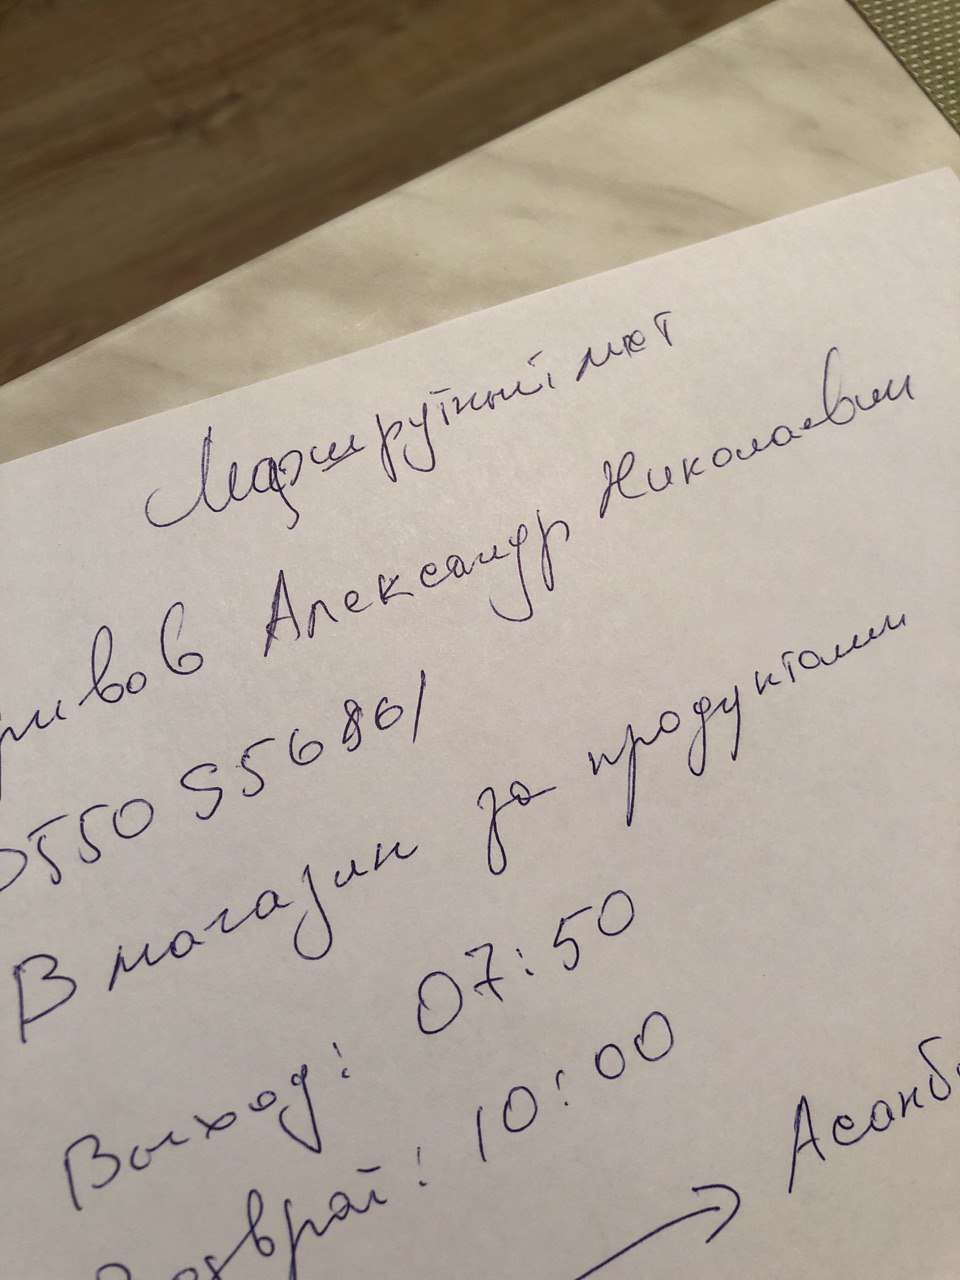 Маршрутный лист
Александр Николаевич
0550 556861
В магазин за продуктами
Выход: 07:50
Возврат: 10:00
→ Асанб